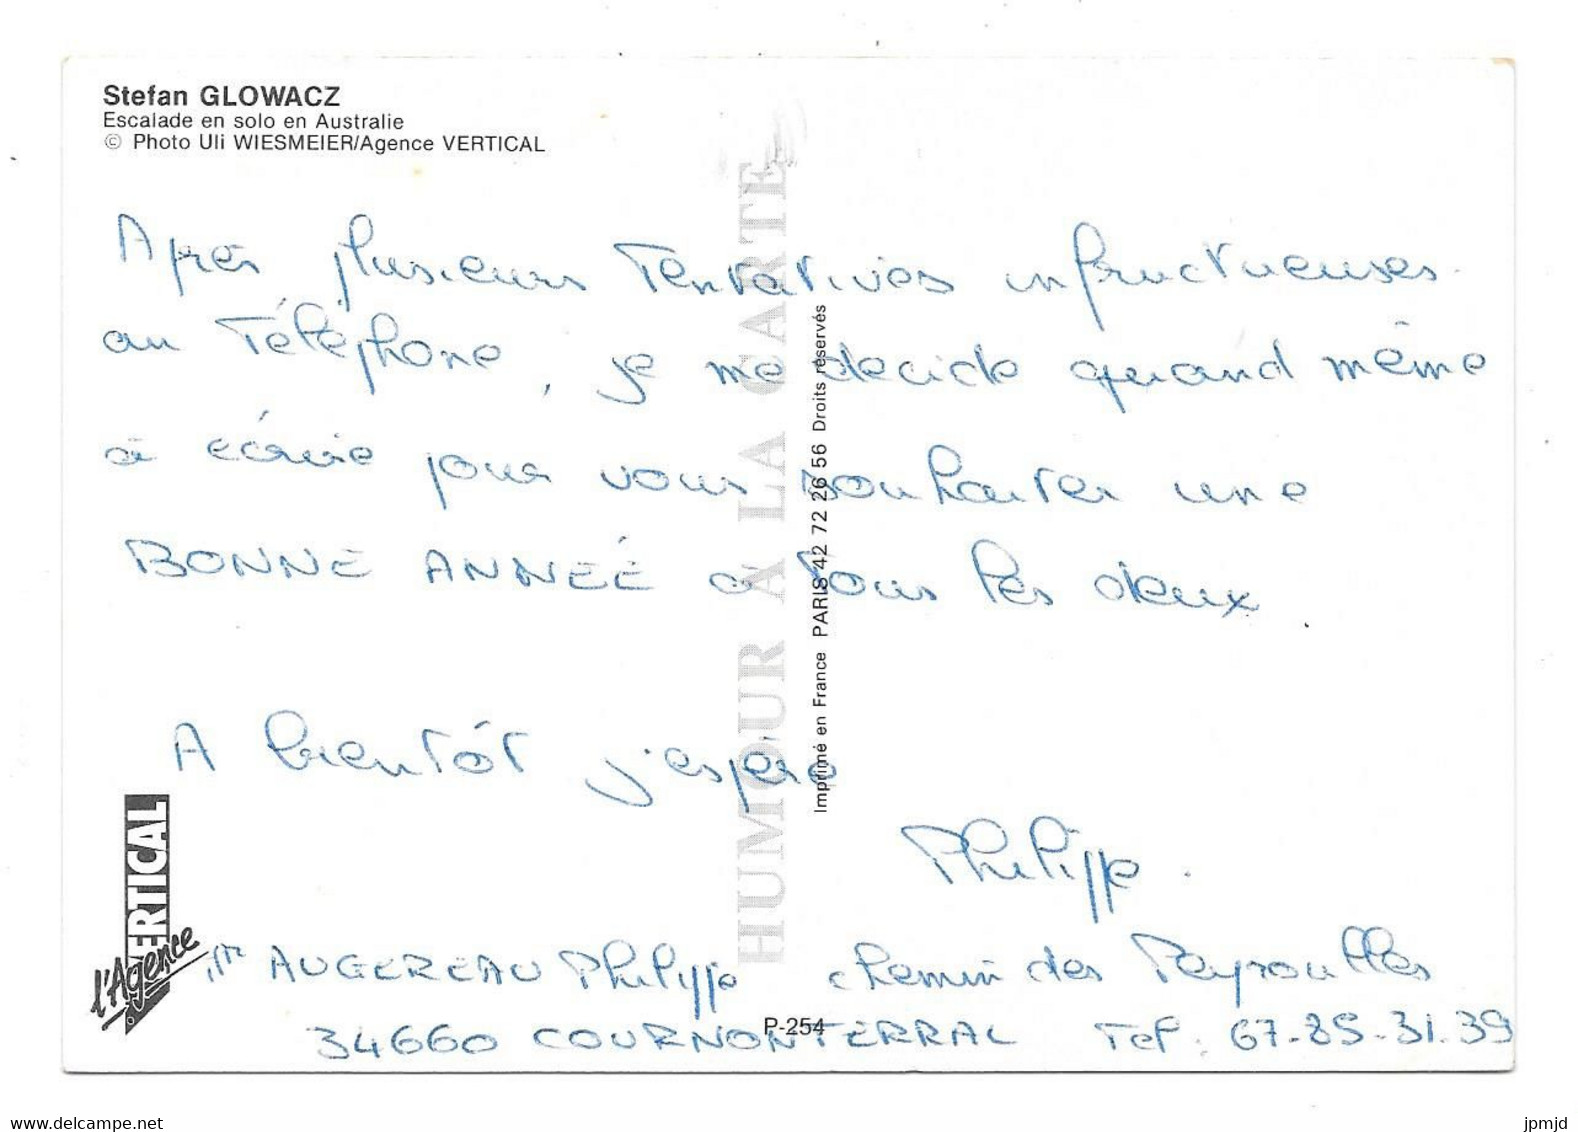 Stefan GLOWACZ
Escalade en solo en Australie
© Photo Uli WIESMEIER/Agence VERTICAL
Après plusieurs tentatives infructueuses
au téléphone, je me decide quand même
à écrire pour vous souhaiter une
BONNE ANNÉE à tous les deux.
A bientôt j'espère
Philippe.
AUGEREAU Philippe chemin des Peyroulles
34660 COURNONTERRAL Tel. 67.85.31.39
HUMOUR À LA CARTE
Imprimé en France PARIS 42 72 26 56 Droits réservés
l'Agence VERTICAL
P-254
www.delcampe.net
jpmjd